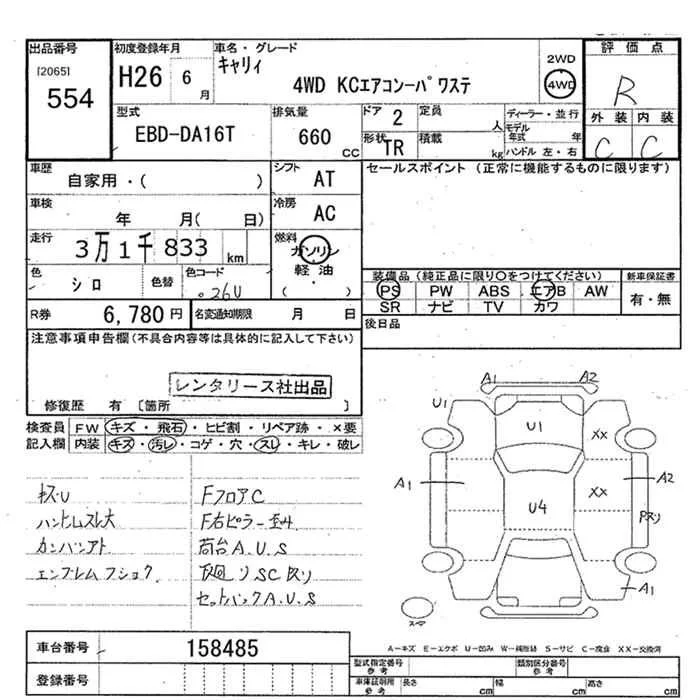 出品番号
[2065]
554
初度登録年月
H26 6月
車名・グレード
キャリィ
4WD KCエアコンーパワステ
2WD
4WD
評価点
R
外装 内装
C C
型式
EBD-DA16T
排気量
660 CC
ドア 2
定員 人
形状 TR
積載 kg
ディーラー・並行
モデル年式 年
ハンドル 左・右
車歴
自家用・( )
シフト AT
セールスポイント(正常に機能するものに限ります)
車検
年 月( 日)
冷房 AC
走行
3万1千833 km
燃料
ガソリン
軽油
( )
色
シロ
色替
色コード
26U
装備品(純正品に限り○をつけてください)
PS PW ABS エアB AW
SR ナビ TV カワ
新車保証書
有・無
R券 6,780円
名変通知期限 月 日
後日品
注意事項申告欄(不具合内容等は具体的に記入して下さい)
レンタリース社出品
修復歴 有 [箇所 ]
検査員記入欄
FW キズ・飛石・ヒビ割・リペア跡・×要
内装 キズ・汚レ・コゲ・穴・スレ・キレ・破レ
キズ・U
ハンドルスレ大
カンバンアト
エンブレムフショク
FフロアC
F右ピラー歪み
荷台A.U.S
セットバックA.U.S
A1 A2
U1 U1 XX
A1 XX A2
U4
Pスリ
A1
スマ
A-キズ E-エクボ U-凹み W-補修跡 S-サビ C-腐食 XX-交換済
車台番号 158485
登録番号
型式指定番号 参考
類別区分番号 参考
車庫証明用 参考
長さ cm 幅 cm 高さ cm